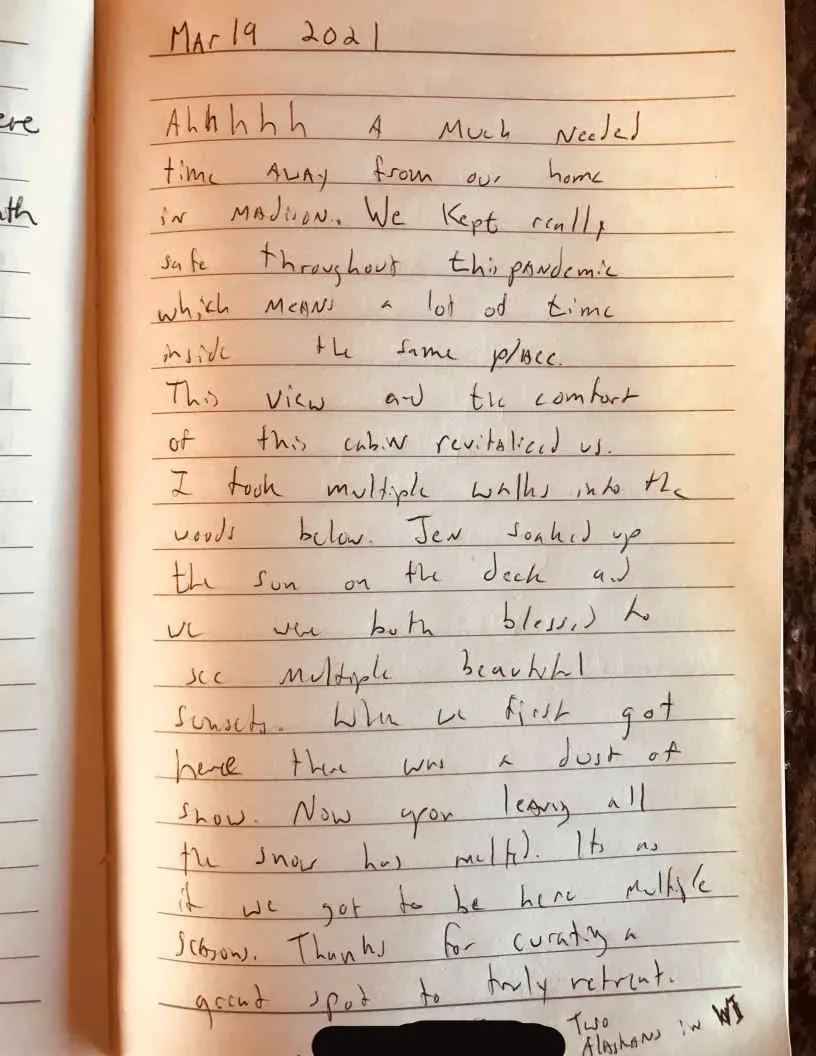 ere
ath
Mar 19 2021
Ahhhhh A Much Needed
time AWAY from our home
in MADISON. We Kept really
safe throughout this pANdemic
which MEANS a lot od time
inside the same plAce.
This view and the comfort
of this cabin revitaliced us.
I took multiple walks into the
woods below. Jen soaked up
the sun on the deck and
we were both blessed to
see Multiple beautiful
sunsets. When we first got
here there was a dust of
snow. Now upon leaving all
the snow has melted. Its as
if we got to be here Multiple
seasons. Thanks for curating a
great spot to truly retreat.
Two
AlaskANs in WI